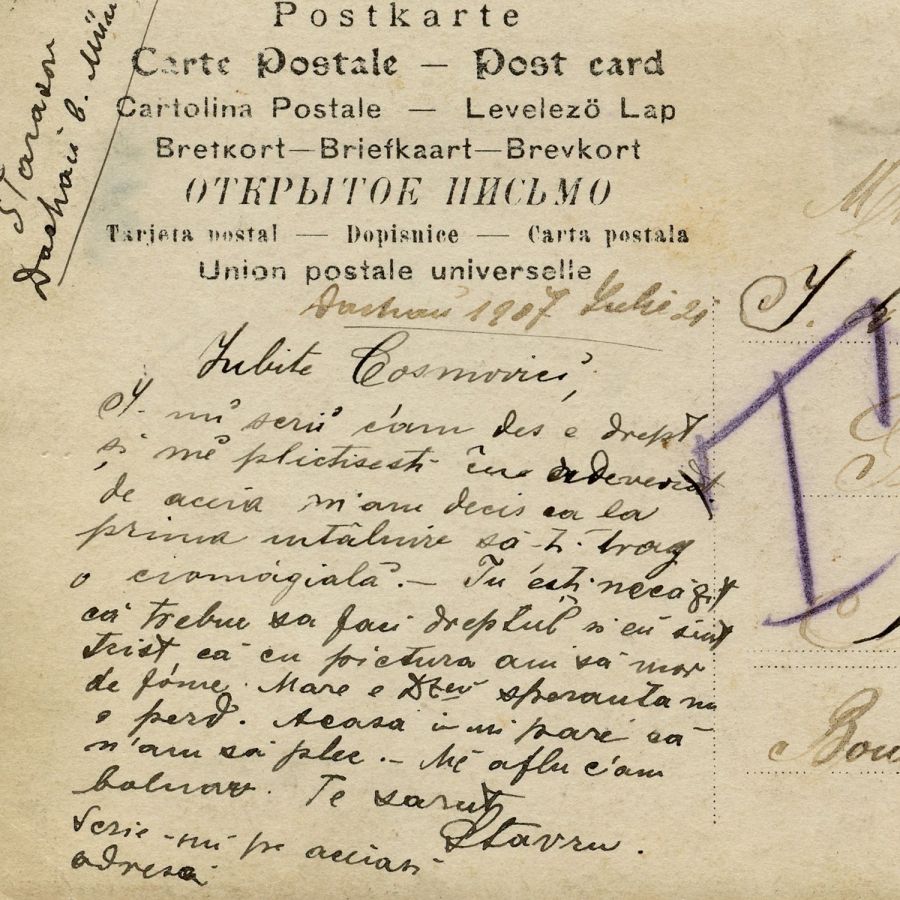 Postkarte
Carte Postale — Post card
Cartolina Postale — Levelezö Lap
Bretkort—Briefkaart—Brevkort
ОТКРЫТОЕ ПИСЬМО
Tarjeta postal — Dopisnice — Carta postala
Union postale universelle
Dachau b. Mün
Dachau 1907 Iulie 21
Iubite Cosmovici,
Iți scriŭ cam des e drept
și mĕ plictisesti
de aceia m'am decis ca la
prima intâlnire să-ti trag
o cromágialâ.— Tu esti necăgit
că trebue sa faci dreptul si eŭ sint
trist că cu pictura am să mor
de fóme. Mare e Dzeŭ speranta nu
o perd. Acasă imi pare că
n'am să plec.— Mĕ aflu cam
bolnav. Te sarut
Stavru.
Scrie-mi pe aceiasi
adresă